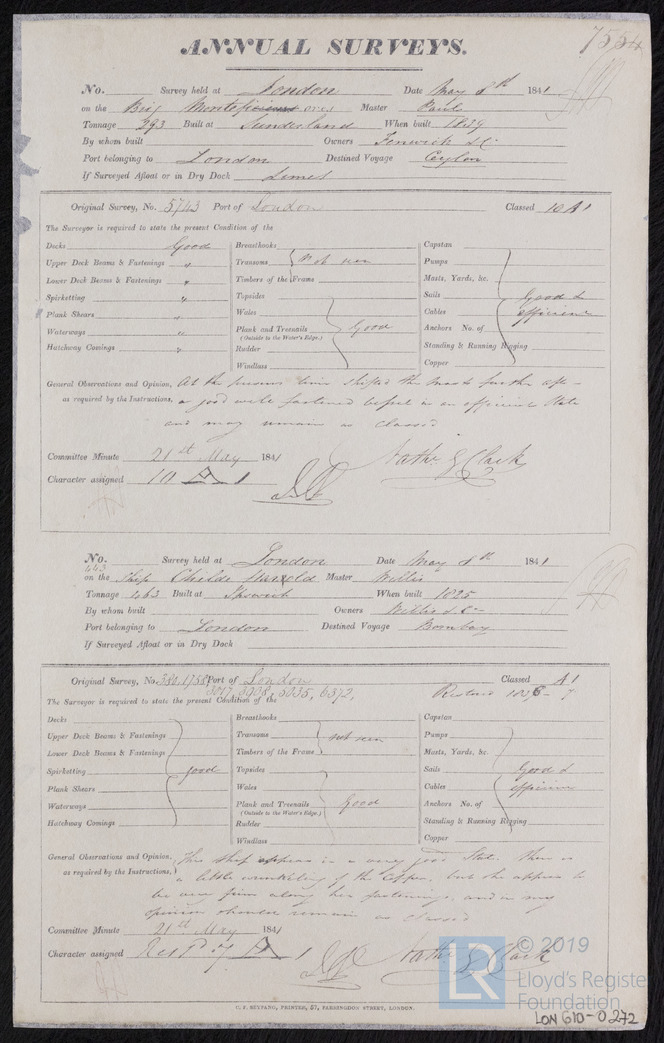 7554
ANNUAL SURVEYS.
No. Survey held at London Date May 8th 1841
on the Brig Montefiores Master Paul
Tonnage 293 Built at Sunderland When built 1839
By whom built Owners Fenwick & Co
Port belonging to London Destined Voyage Ceylon
If Surveyed Afloat or in Dry Dock Limes
Original Survey, No. 5743 Port of London Classed 10 A 1
The Surveyor is required to state the present Condition of the
Decks Good Breasthooks Capstan
Upper Deck Beams & Fastenings " Transoms not seen Pumps
Lower Deck Beams & Fastenings " Timbers of the Frame Masts, Yards, &c.
Spirketting " Topsides Sails Good &
Plank Shears " Wales Cables efficient
Waterways " Plank and Treenails Good Anchors No. of
(Outside to the Water's Edge.)
Hatchway Comings " Rudder Standing & Running Rigging
Windlass Copper
General Observations and Opinion, At the present time shifted the mast further aft -
as required by the Instructions, a good well fastened vessel is in an efficient state
and may remain as classed
Committee Minute 21st May 1841 Nathl G Clark
Character assigned 10 A 1
No. Survey held at London Date May 8th 1841
443
on the Ship Childe Harold Master Willis
Tonnage 463 Built at Ipswich When built 1825
By whom built Owners Willis & Co
Port belonging to London Destined Voyage Bombay
If Surveyed Afloat or in Dry Dock
Original Survey, No. 380, 1758, Port of London Classed A 1
3017, 5008, 5035, 6372, Restored 1836 - 7
The Surveyor is required to state the present Condition of the
Decks Breasthooks Capstan
Upper Deck Beams & Fastenings Transoms not seen Pumps
Lower Deck Beams & Fastenings Timbers of the Frame Masts, Yards, &c.
Spirketting good Topsides Sails Good &
Plank Shears Wales Cables efficient
Waterways Plank and Treenails Good Anchors No. of
(Outside to the Water's Edge.)
Hatchway Comings Rudder Standing & Running Rigging
Windlass Copper
General Observations and Opinion, This ship appears in a very good State. There is
as required by the Instructions, a little wrinkling of the Copper, but she appears to
be very firm along her fastenings, and in my
opinion should remain as classed
Committee Minute 21st May 1841
Character assigned Restd 7 A 1 Nathl G Clark
LR © 2019
Lloyd's Register
Foundation
C. F. SEYFANG, PRINTER, 57, FARRINGDON STREET, LONDON.
LON 610-0272